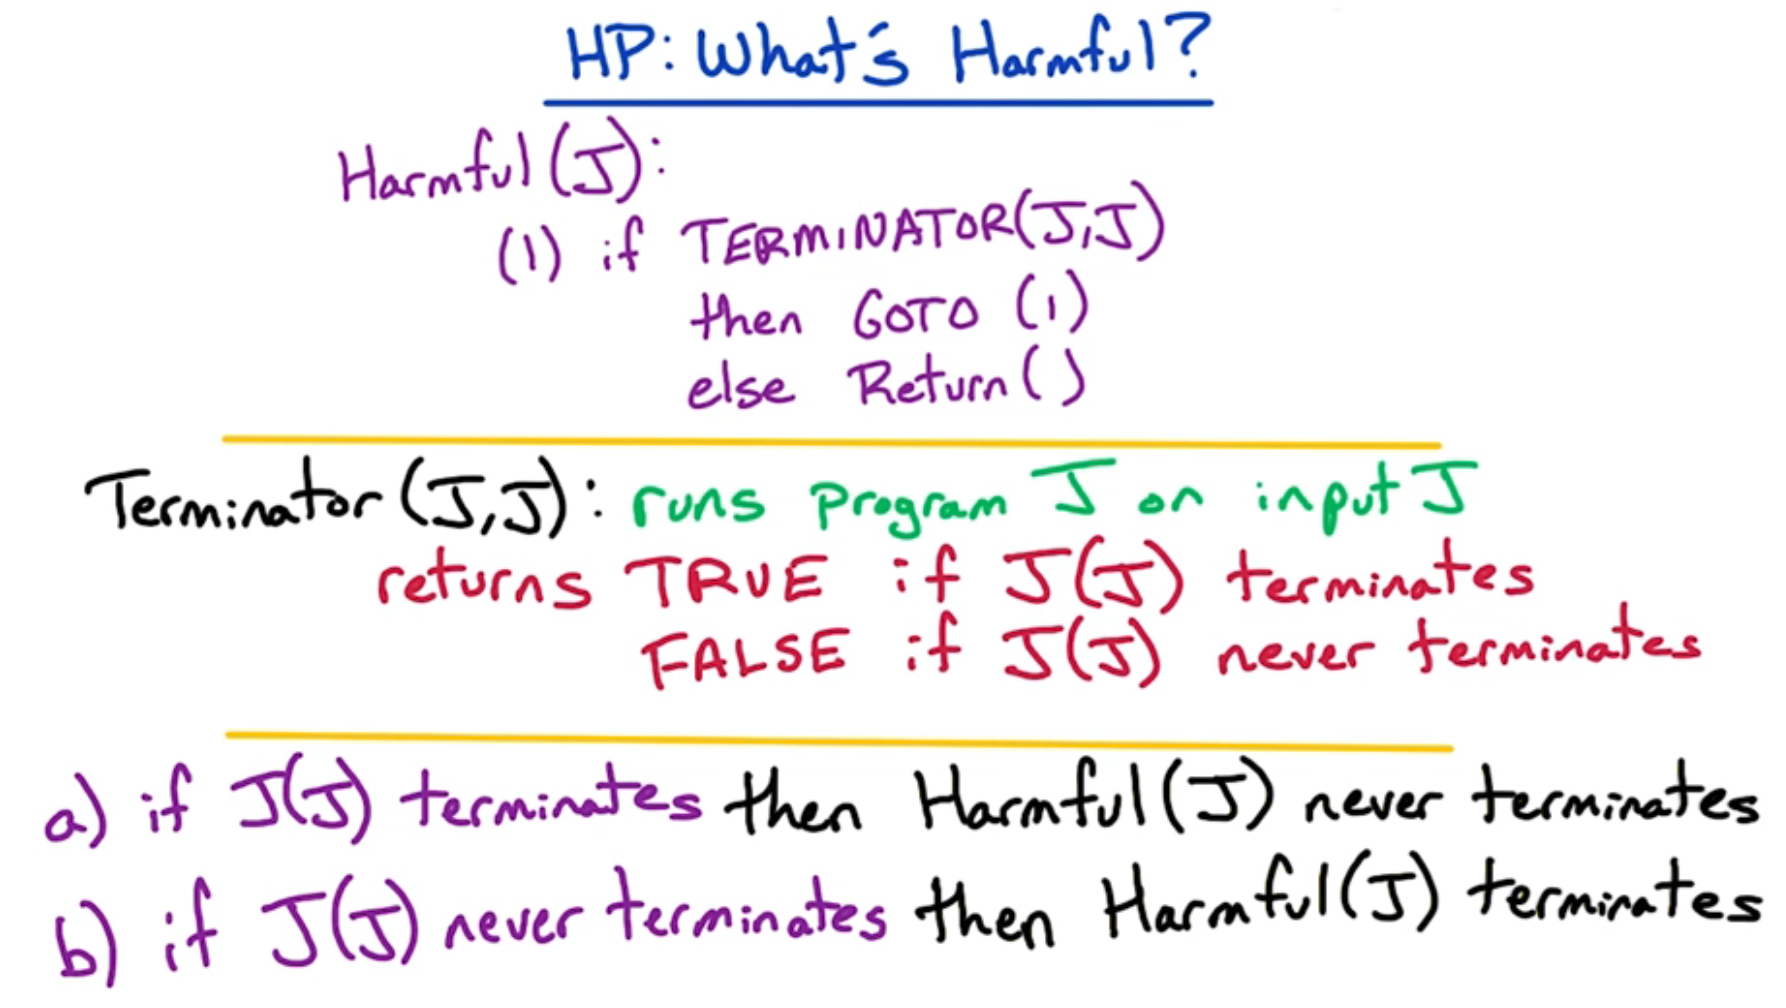 HP: What's Harmful?
Harmful(J):
(1) if TERMINATOR(J,J)
then GOTO (1)
else Return()
Terminator(J,J): runs program J on input J
returns TRUE if J(J) terminates
FALSE if J(J) never terminates
a) if J(J) terminates then Harmful(J) never terminates
b) if J(J) never terminates then Harmful(J) terminates